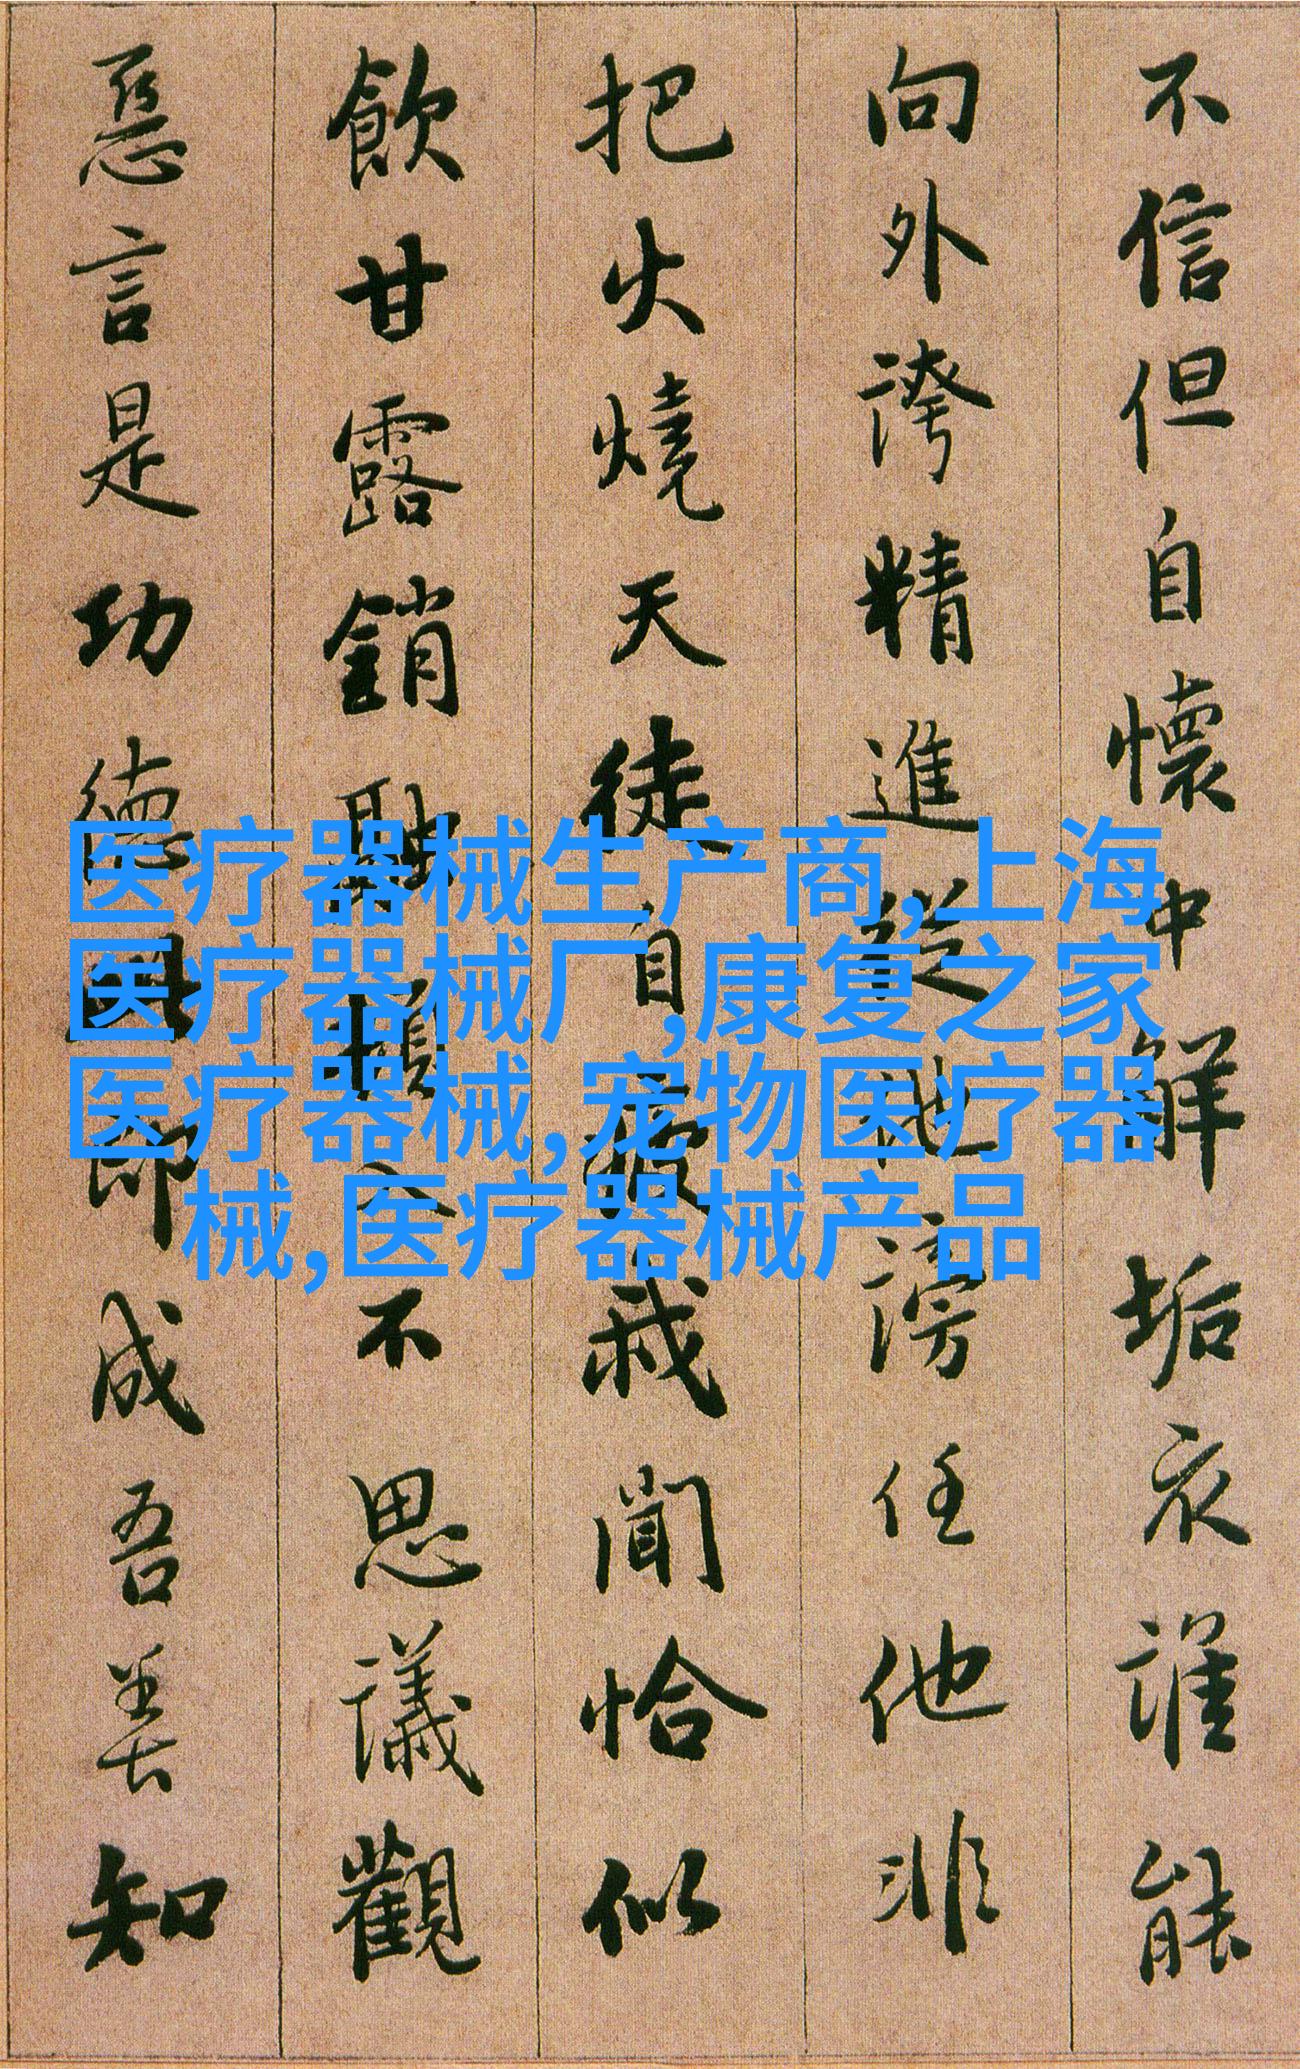 不信但自懷中解垢衣誰能
向外誇精進從他謗任他非
把火燒天徒自疲我聞恰似
飲甘露銷融頓入不思議觀
惡言是功德此即成吾善知
医疗器械生产商,上海
医疗器械厂,康复之家
医疗器械,宠物医疗器
械,医疗器械产品